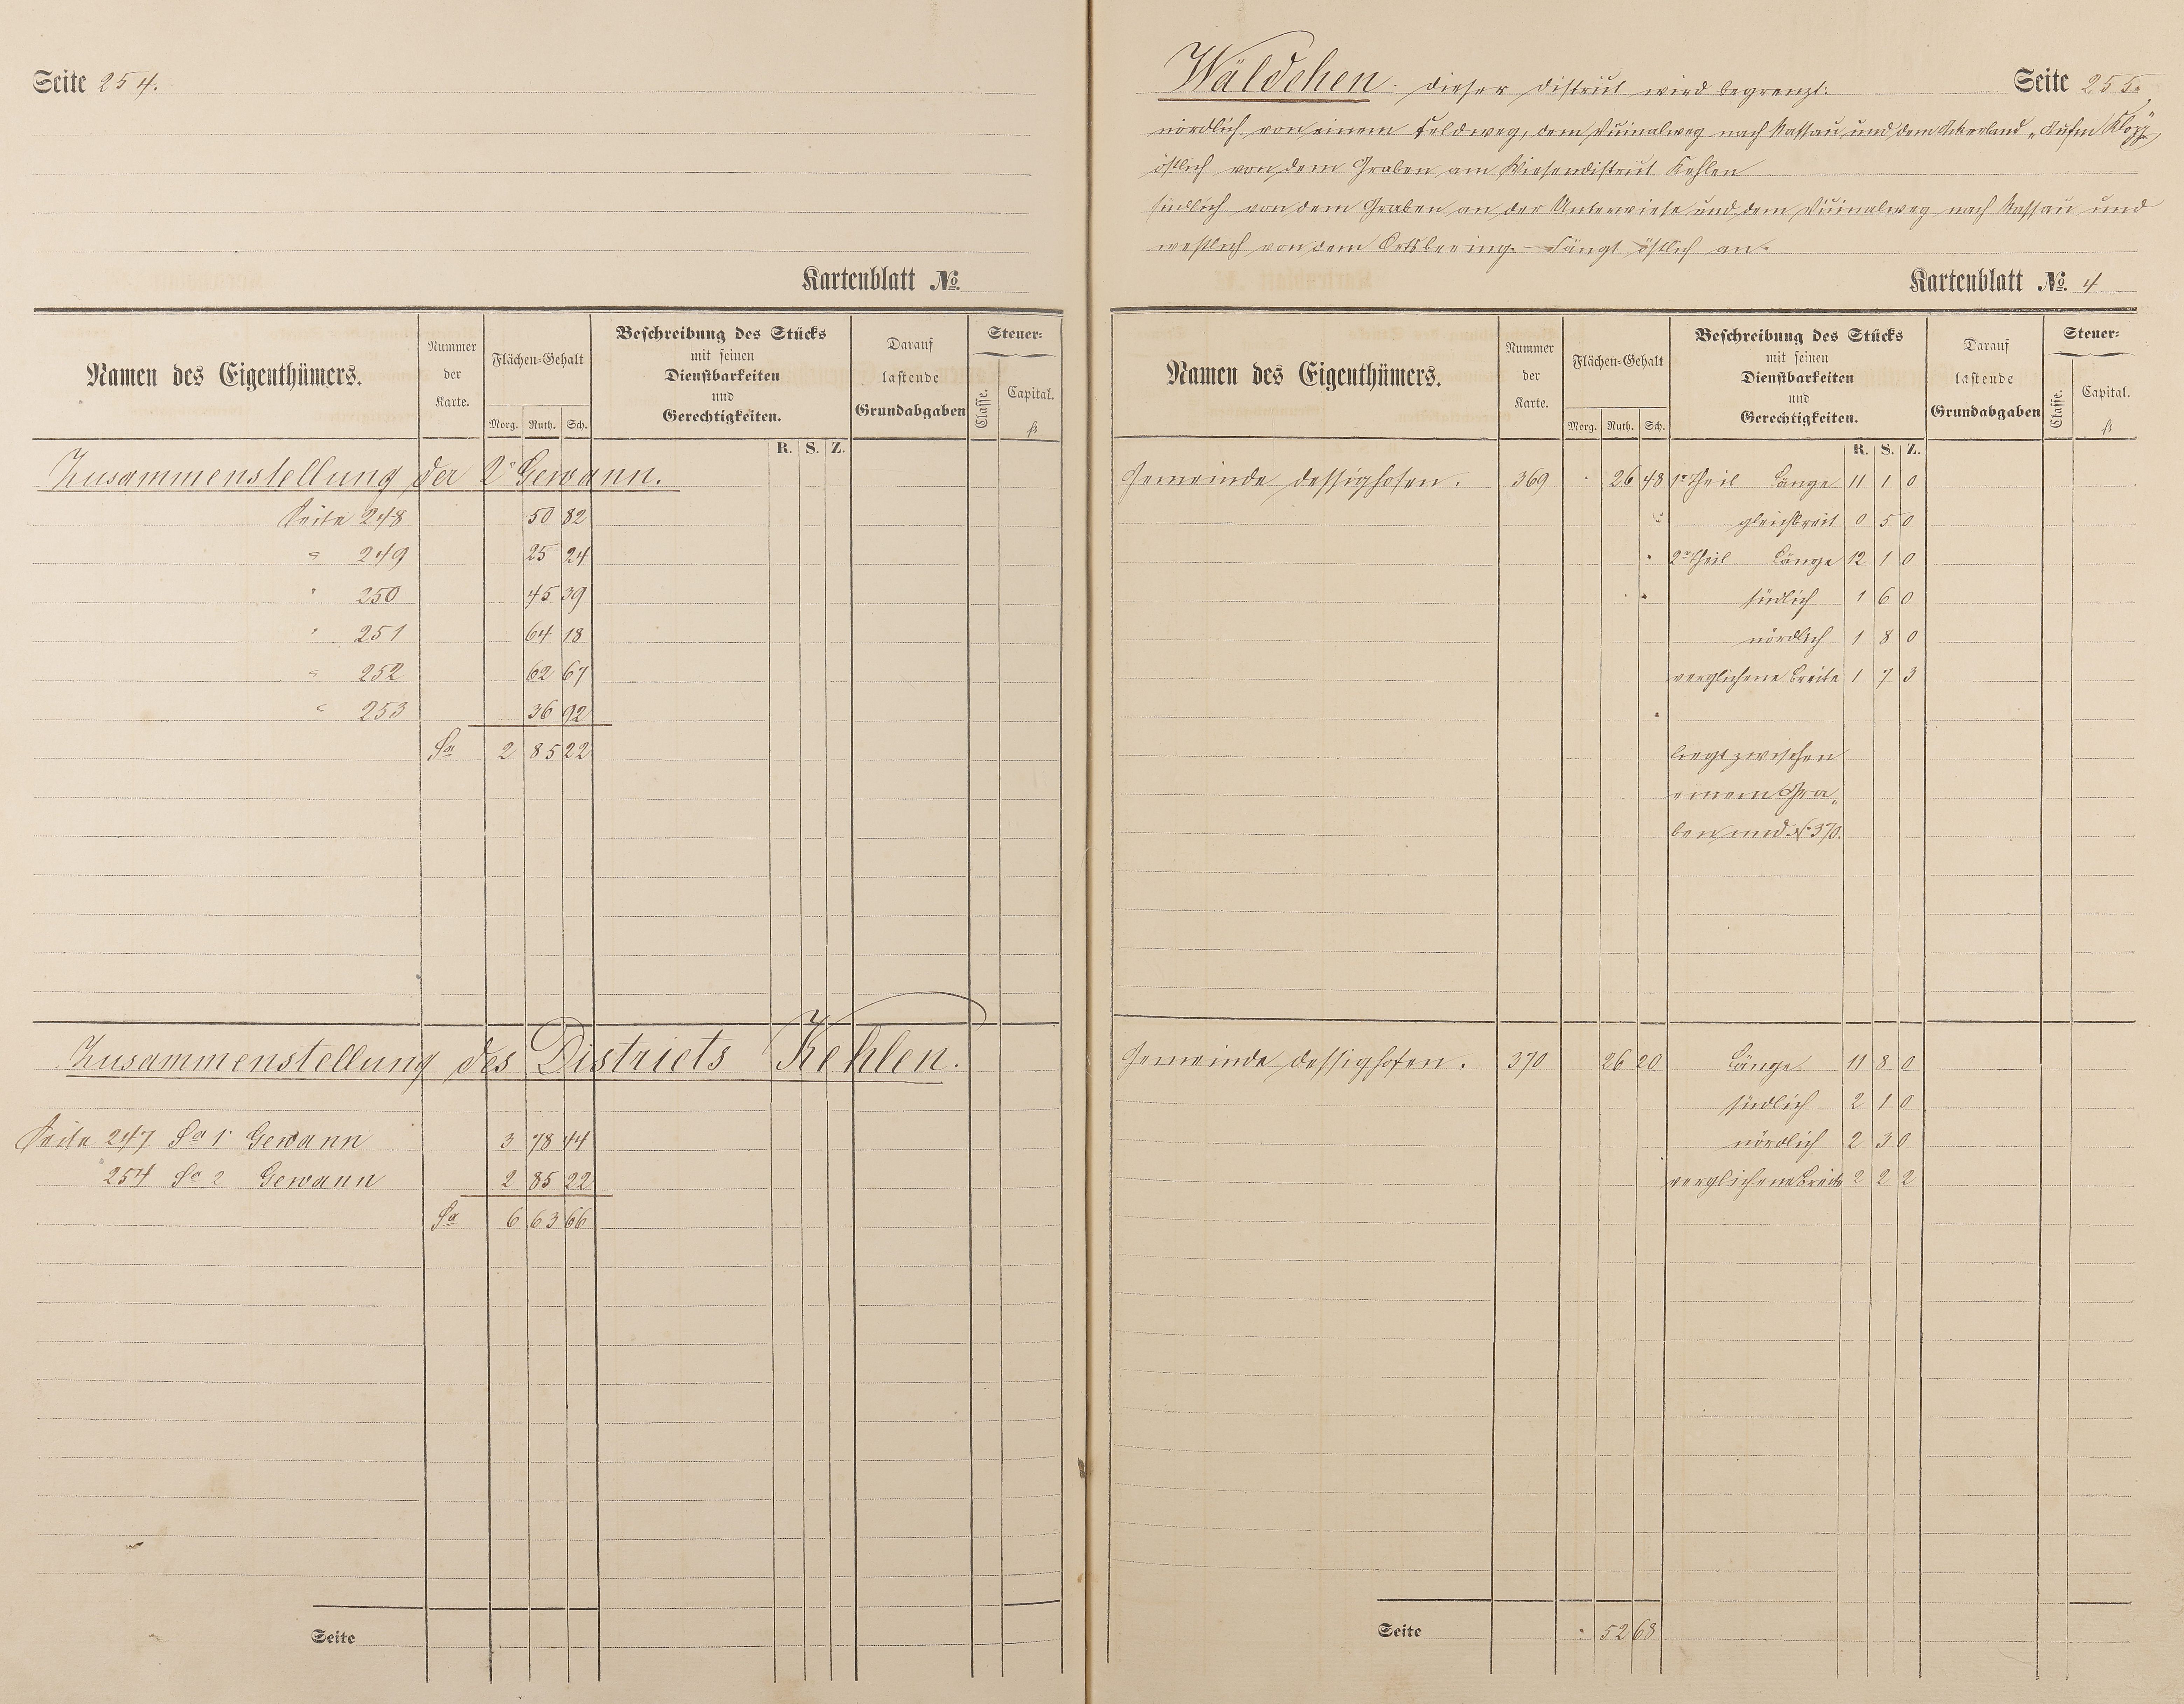 Seite 254.
Kartenblatt No.
Namen des Eigenthümers.
Nummer der Karte.
Flächen-Gehalt
Morg. Ruth. Sch.
Beschreibung des Stücks
mit seinen
Dienstbarkeiten
und
Gerechtigkeiten.
Darauf
lastende
Grundabgaben
Steuer-
Classe.
Capital.
fl
R. S. Z.
Zusammenstellung der 2r Gewann.
Seite 248 50 82
" 249 25 24
" 250 45 39
" 251 64 18
" 252 62 67
" 253 36 92
Sa 2 85 22
Zusammenstellung des Districts Kehlen.
Seite 247 Sa 1r Gewann 3 78 44
254 Sa 2 Gewann 2 85 22
Sa 6 63 66
Seite
Wäldchen. Dieser District wird begrenzt: Seite 255.
nördlich von einem Feldweg, dem Vicinalweg nach Nassau und dem Ackerland „Aufm Klopp"
östlich von dem Graben am Wiesendistrict Kehlen
südlich von dem Graben an der Unterwiese und dem Vicinalweg nach Nassau und
westlich von dem Ortsbering. – Fängt östlich an.
Kartenblatt No. 4
Namen des Eigenthümers.
Nummer der Karte.
Flächen-Gehalt
Morg. Ruth. Sch.
Beschreibung des Stücks
mit seinen
Dienstbarkeiten
und
Gerechtigkeiten.
Darauf
lastende
Grundabgaben
Steuer-
Classe.
Capital.
fl
R. S. Z.
Gemeinde Dessighofen. 369 26 48 1r Theil Länge 11 1 0
gleichbreit 0 5 0
2r Theil Länge 12 1 0
südlich 1 6 0
nördlich 1 8 0
verglichene Breite 1 7 3
liegt zwischen
einem Gra„
ben und No 370.
Gemeinde Dessighofen. 370 26 20 Länge 11 8 0
südlich 2 1 0
nördlich 2 3 0
verglichene Breite 2 2 2
Seite 52 68